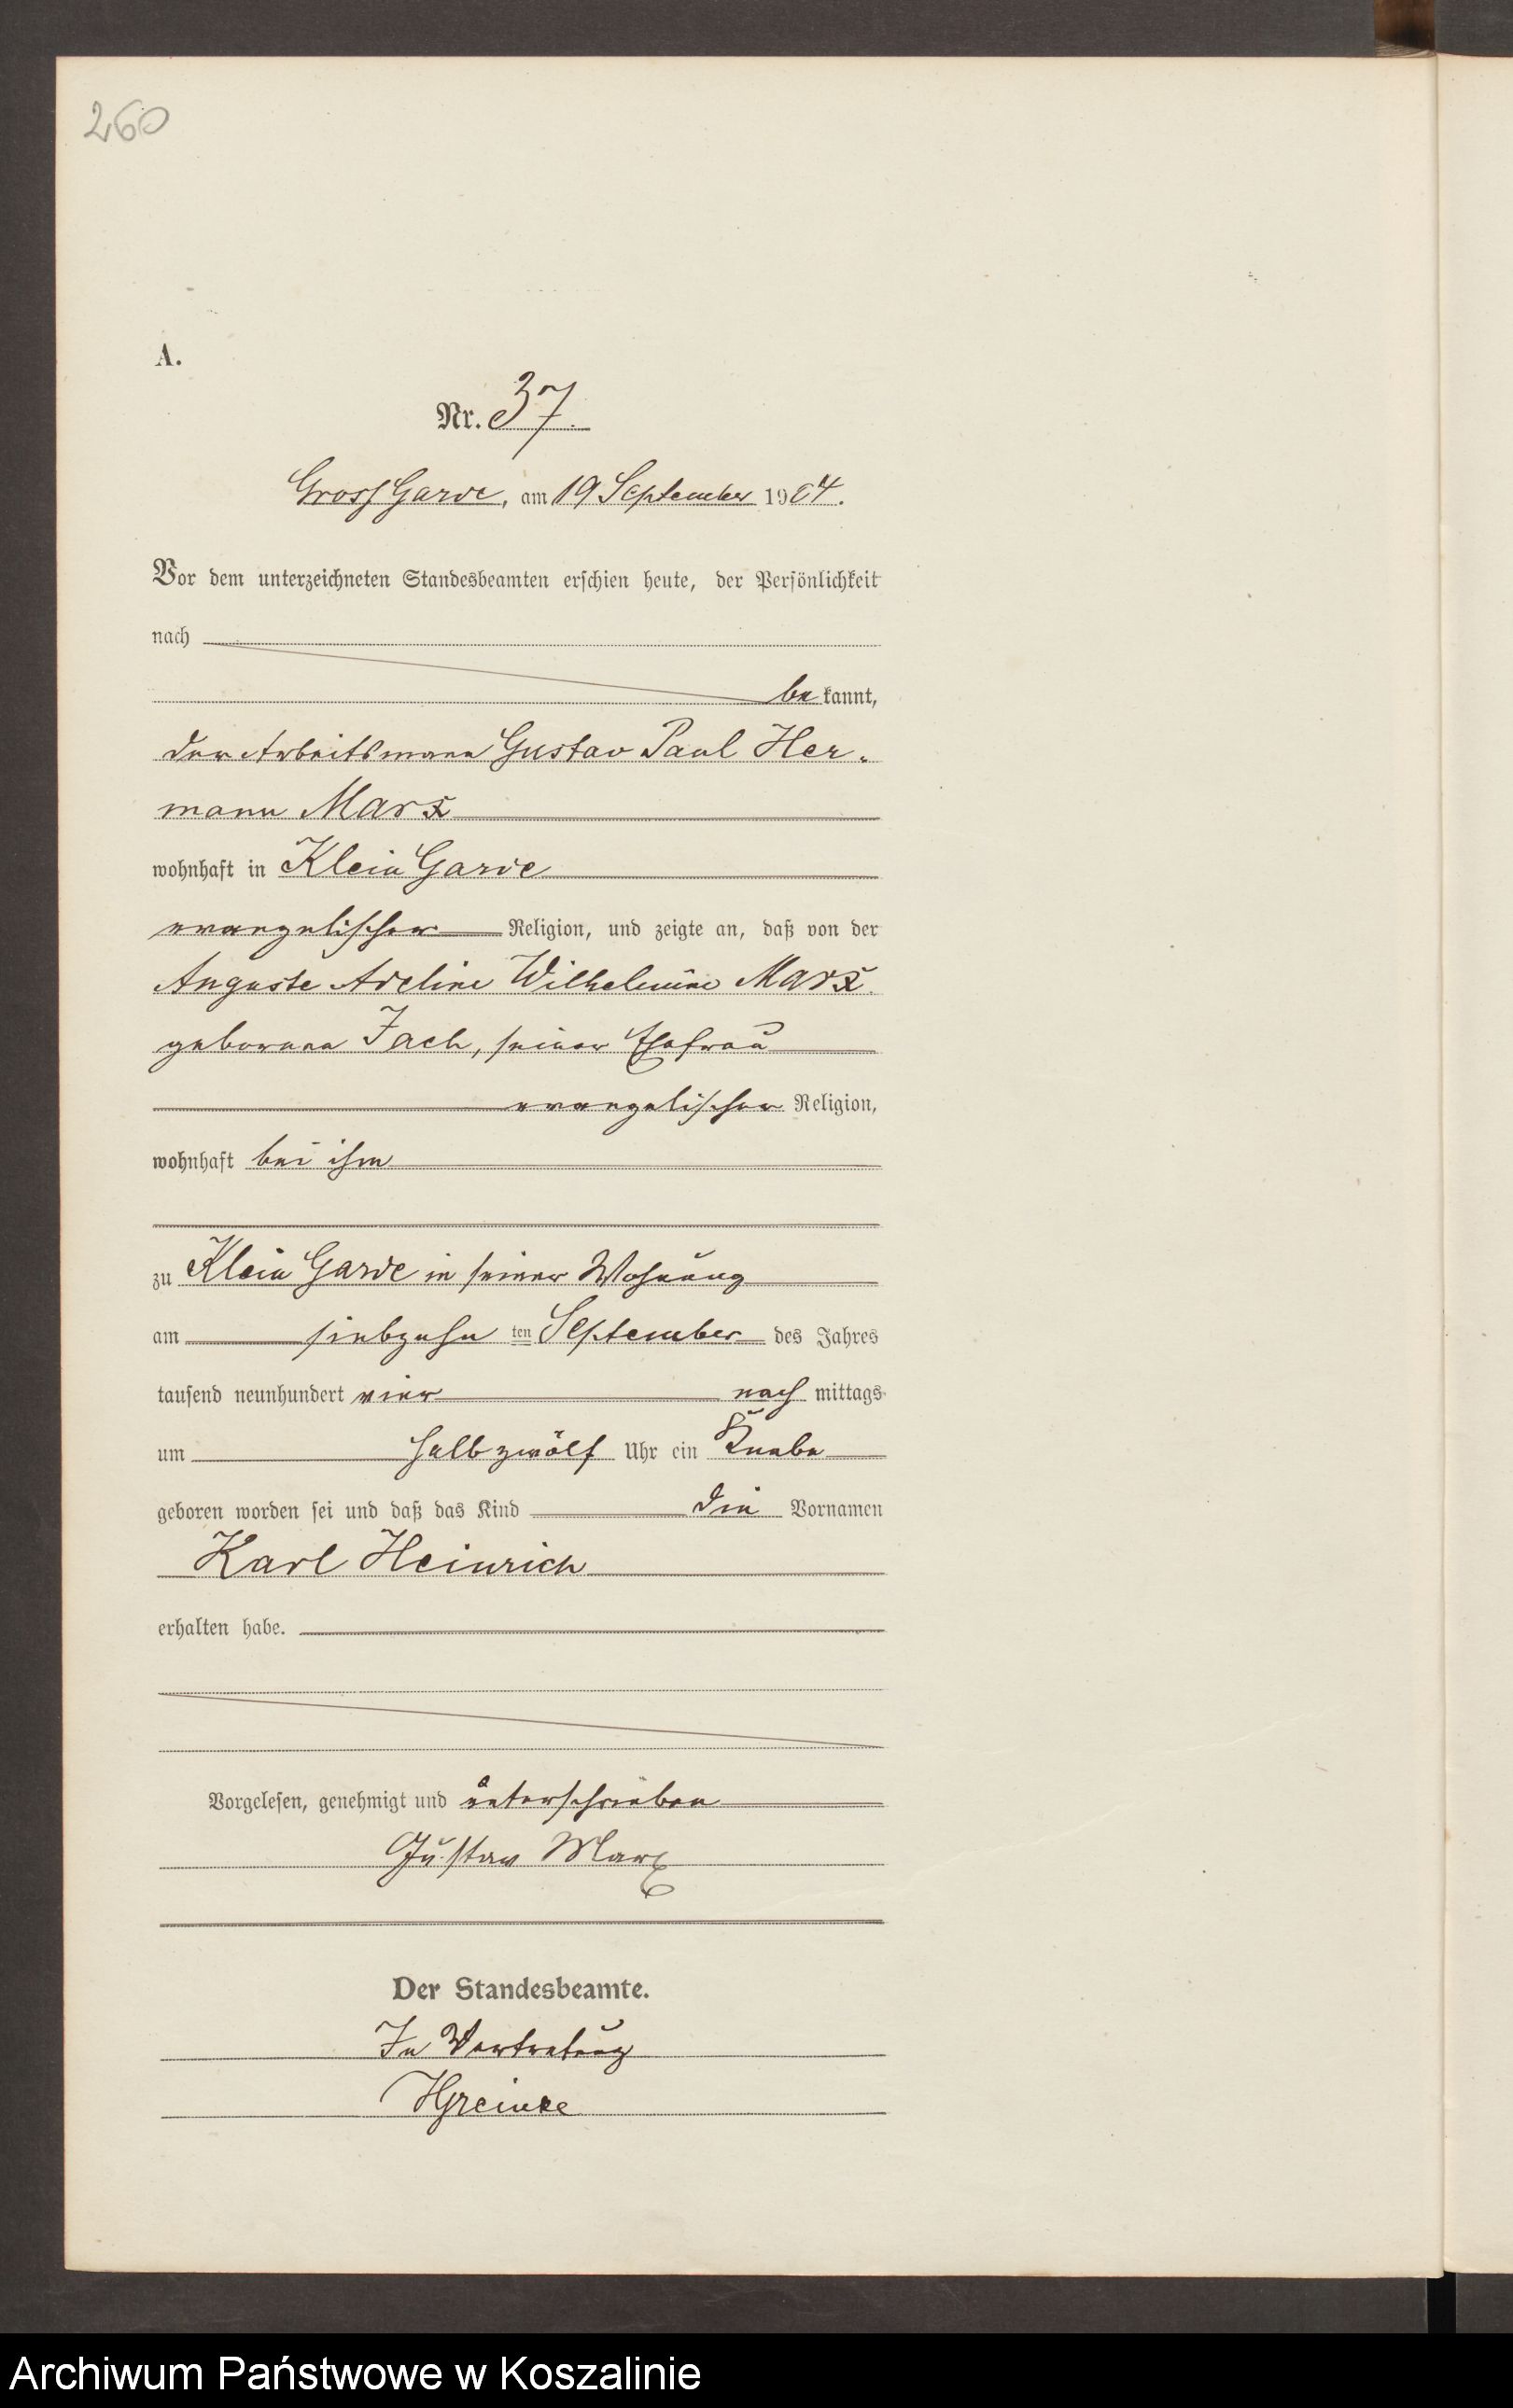 260
A.
Nr. 37.
Gross Garde, am 19 September 1904.
Vor dem unterzeichneten Standesbeamten erschien heute, der Persönlichkeit
nach
be kannt,
der Arbeitsmann Gustav Paul Her-
mann Marx
wohnhaft in Klein Garde
evangelischer Religion, und zeigte an, daß von der
Auguste Adeline Wilhelmine Marx
geborene Jach, seiner Ehefrau
evangelischer Religion,
wohnhaft bei ihm
zu Klein Garde in seiner Wohnung
am siebzehn ten September des Jahres
tausend neunhundert vier nach mittags
um halb zwölf Uhr ein Knabe
geboren worden sei und daß das Kind die Vornamen
Karl Heinrich
erhalten habe.
Vorgelesen, genehmigt und unterschrieben
Gustav Marx
Der Standesbeamte.
In Vertretung
HGreinke
Archiwum Państwowe w Koszalinie